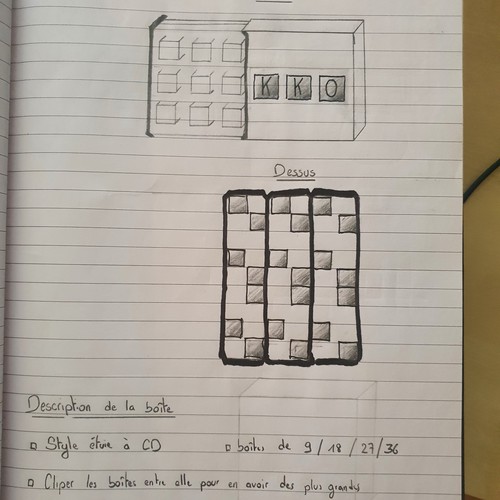 K K O
Dessus
Description de la boîte
□ Style étuie à CD □ boîtes de 9/18/27/36
□ Cliper les boîtes entre elle pour en avoir des plus grandes